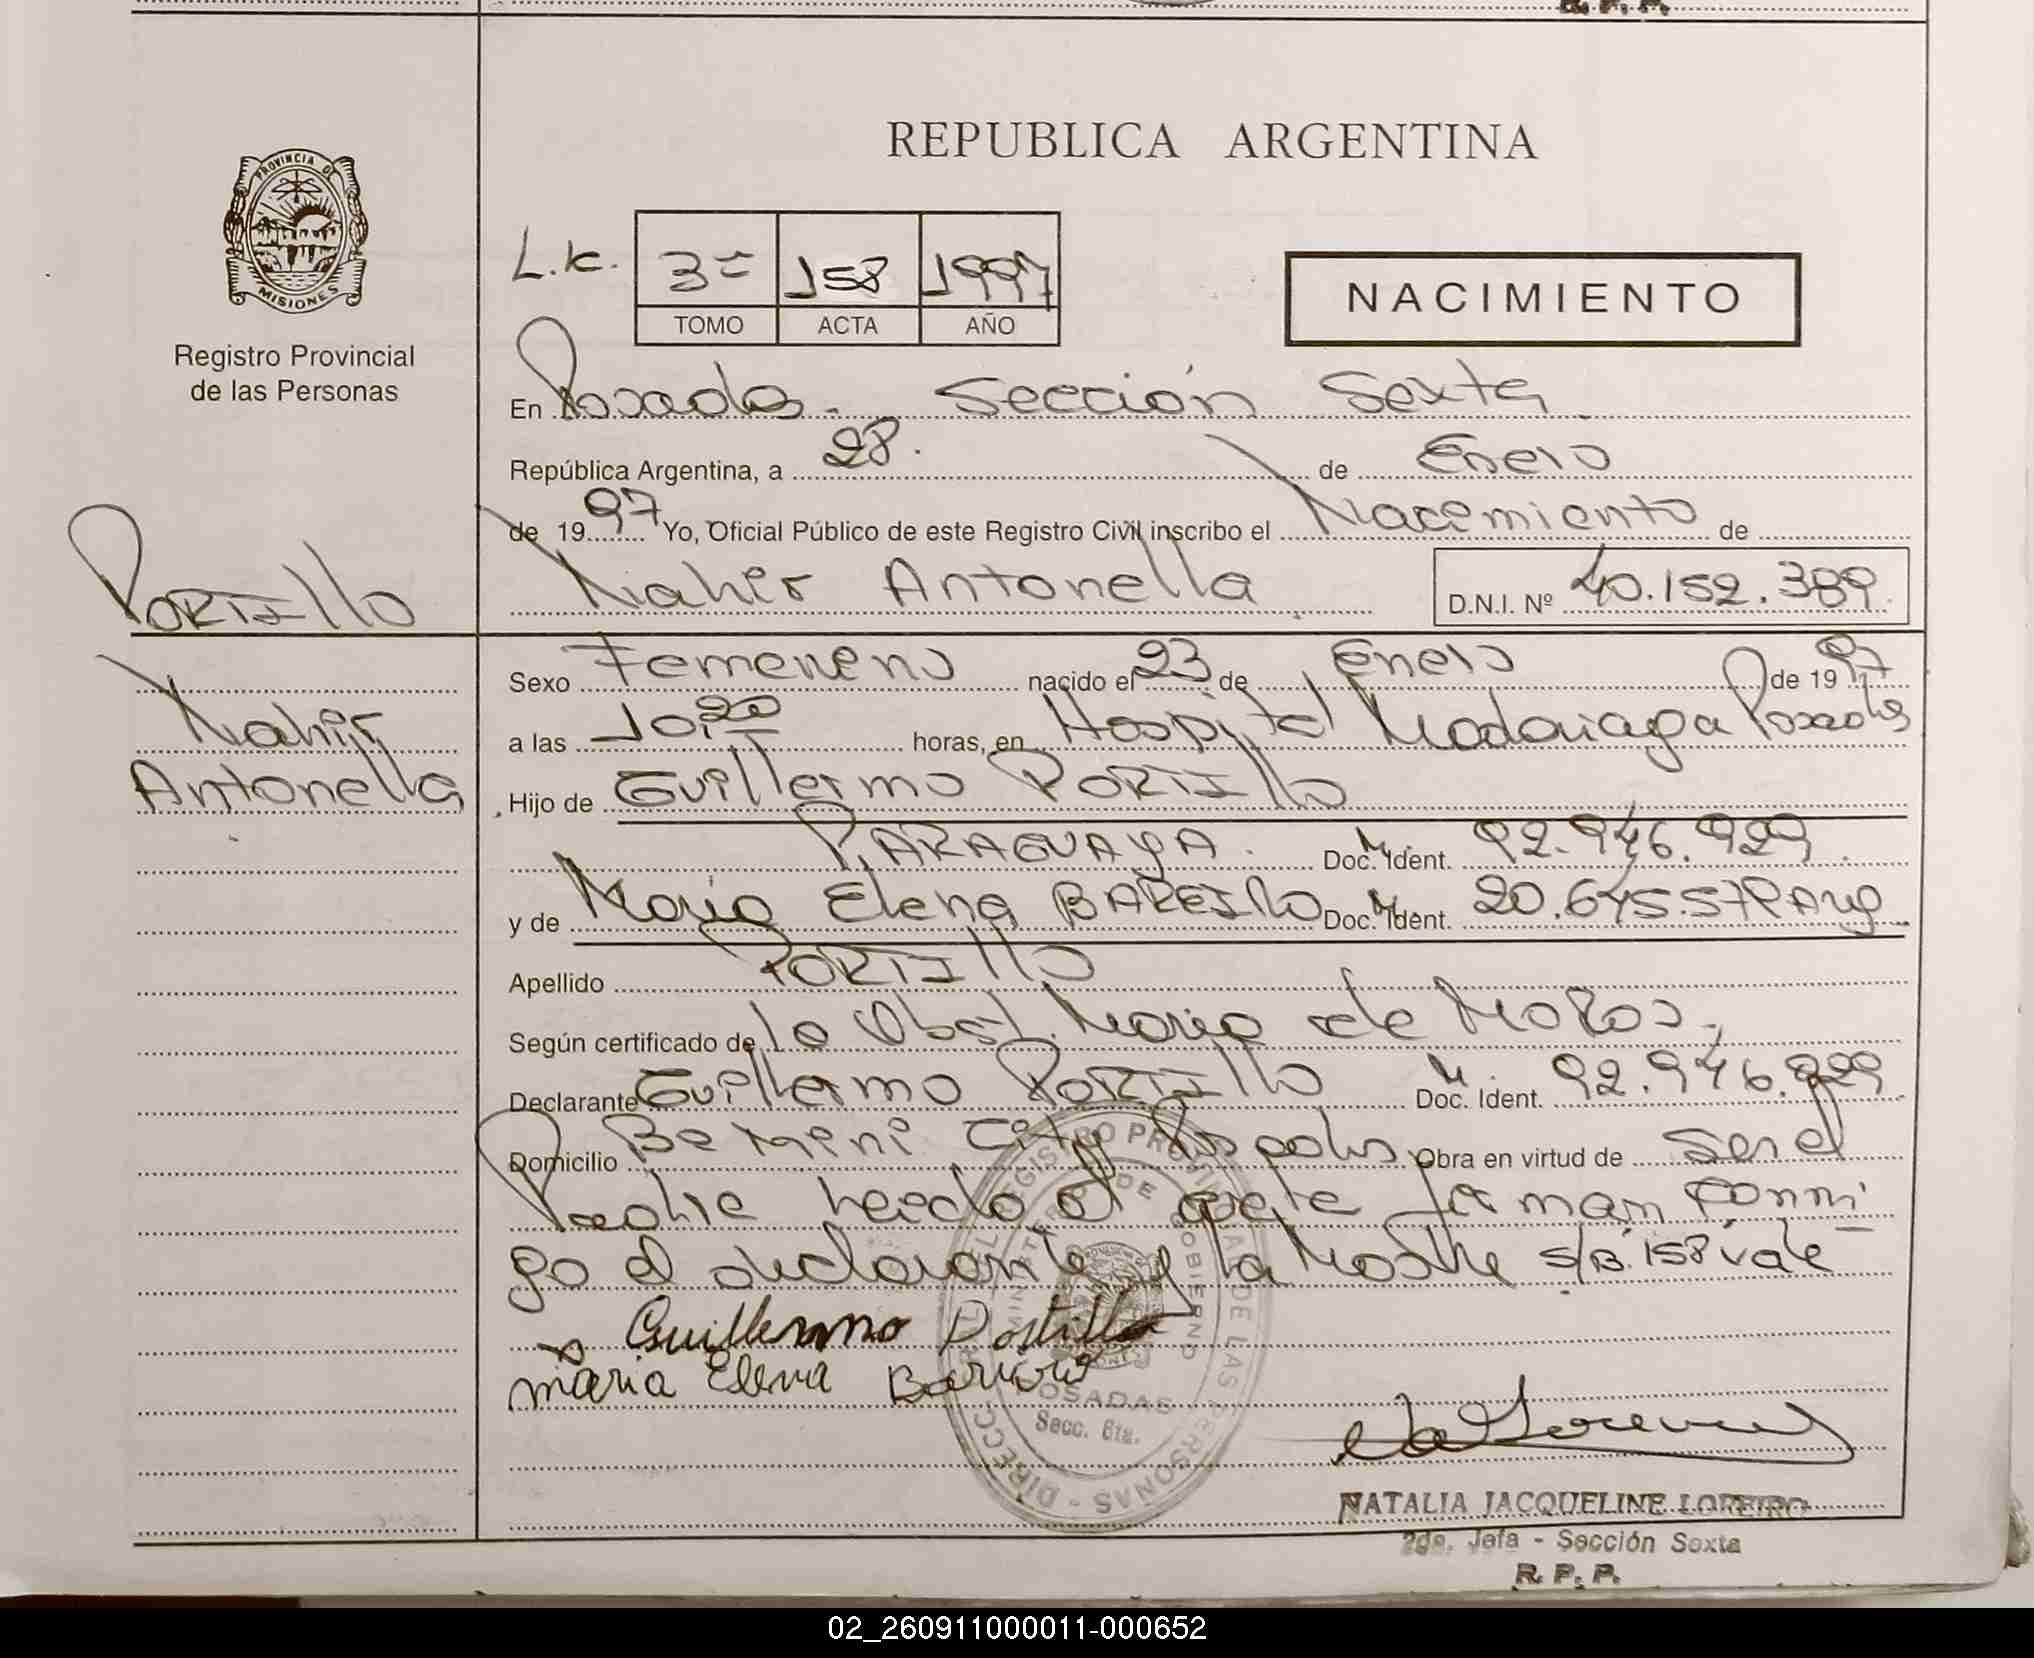 R. P. P.
REPUBLICA ARGENTINA
PROVINCIA DE
MISIONES
Registro Provincial
de las Personas
L.K. 3º 158 1997
TOMO ACTA AÑO
NACIMIENTO
En Posadas. Sección Sexta.
República Argentina, a 28. de Enero
de 1997 Yo, Oficial Público de este Registro Civil inscribo el Nacimiento de
Nahir Antonella D.N.I. Nº 40.152.389
PORTILLO
Nahir
Antonella
Sexo Femenino nacido el 23 de Enero de 1997
a las 10,20 horas, en Hospital Madariaga Posadas
Hijo de Guillermo PORTILLO
PARAGUAYA. Doc. Ident. 92.946.929
y de Maria Elena BAREIRO Doc. Ident. 20.645.57 Arg
Apellido PORTILLO
Según certificado de la Obst. Maria de Moros.
Declarante Guillermo PORTILLO Doc. Ident. 92.946.929
Domicilio City Posadas Obra en virtud de ser el
Padre leido el firman conmi
go el declarante y la Madre s/B. 158 vale
Guillermo Portillo
Maria Elena Bareiro
DIRECC. REGISTRO PROVINCIAL DE LAS PERSONAS
MINISTERIO DE GOBIERNO
POSADAS
Secc. 6ta.
NATALIA JACQUELINE LOREIRO
2da. Jefa - Sección Sexta
R. P. P.
02_260911000011-000652